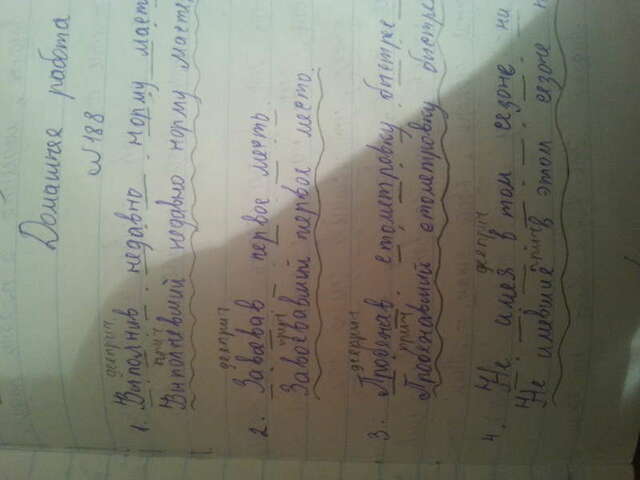 Домашнее работа
№188
дееприч
1. Выполнив недавно норму маст
прич
Выполневший недавно норму масте
дееприч
2. Завоевав первое месть.
прич
Завоевавший первое место.
дееприч
3. Пробежав стометровку быстрее
прич
Пробежавший стометровку быстре
дееприч
4. Не имея в том сезоне ни
прич
Не имевшие в этом сезоне н